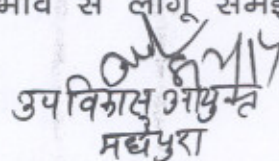 से लागू
उप विकास आयुक्त
मधेपुरा